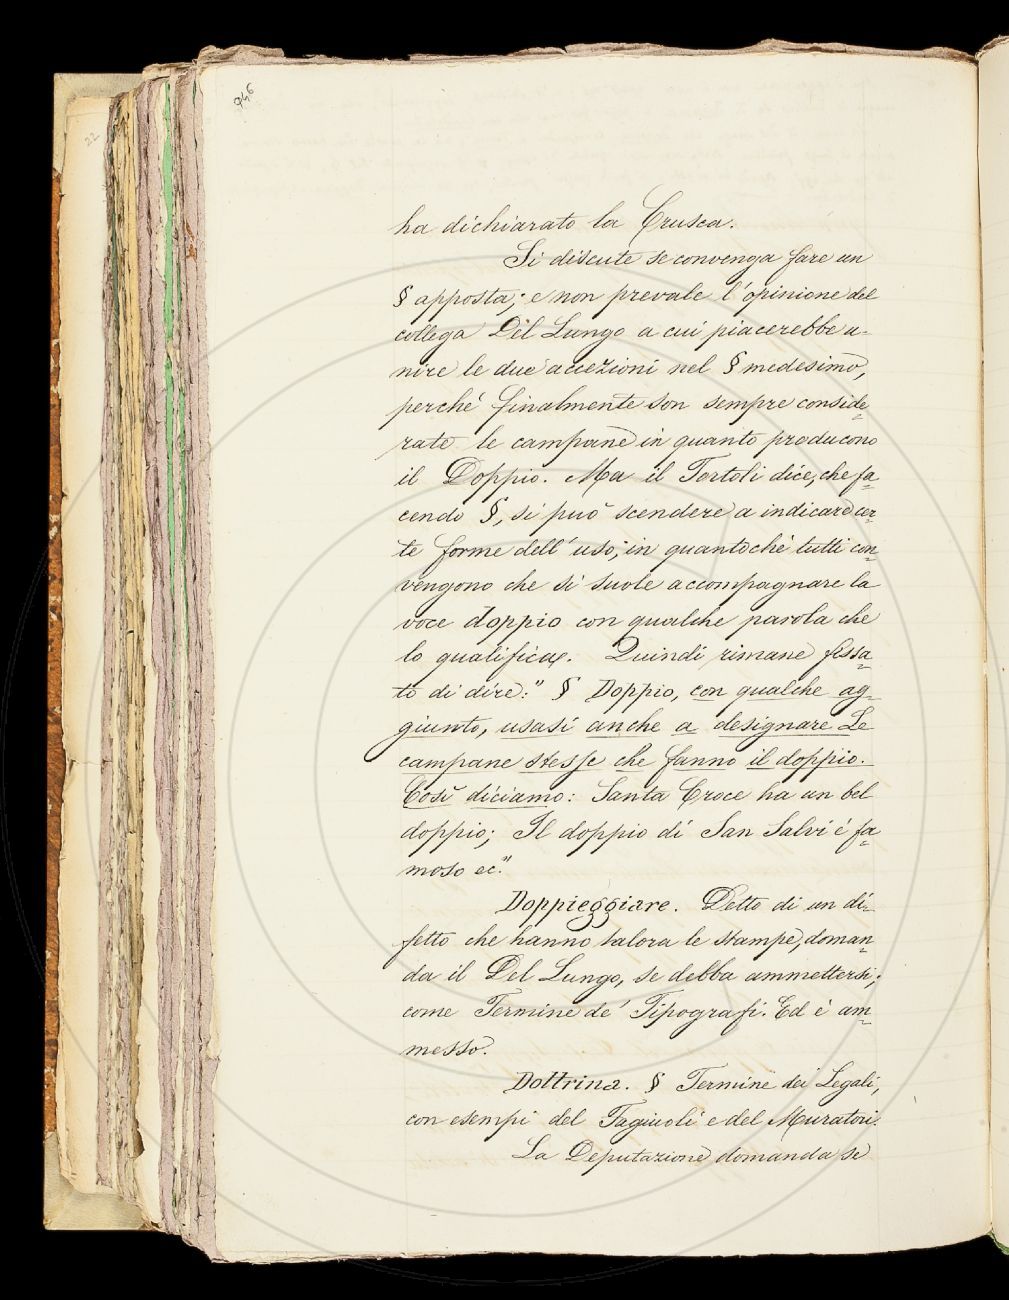 946
22
ha dichiarato la Crusca.
Si discute se convenga fare un
§ apposta; e non prevale l'opinione del
collega Del Lungo a cui piacerebbe u-
nire le due accezioni nel § medesimo,
perché finalmente son sempre conside
rate le campane in quanto producono
il Doppio. Ma il Tortoli dice, che fa
cendo §, si può scendere a indicare cer
te forme dell'uso; in quantoché tutti con
vengono che si suole accompagnare la
voce doppio con qualche parola che
lo qualifica. Quindi rimane fissa
to di dire: " § Doppio, con qualche ag-
giunto, usasi anche a designare le
campane stesse che fanno il doppio.
Così diciamo: Santa Croce ha un bel
doppio; Il doppio di San Salvi è fa
moso ec."
Doppieggiare. Detto di un di-
fetto che hanno talora le stampe, doman
da il Del Lungo, se debba ammettersi;
come Termine de' Tipografi. Ed è am
messo.
Dottrina. § Termine dei Legali,
con esempi del Fagiuoli e del Muratori.
La Deputazione domanda se